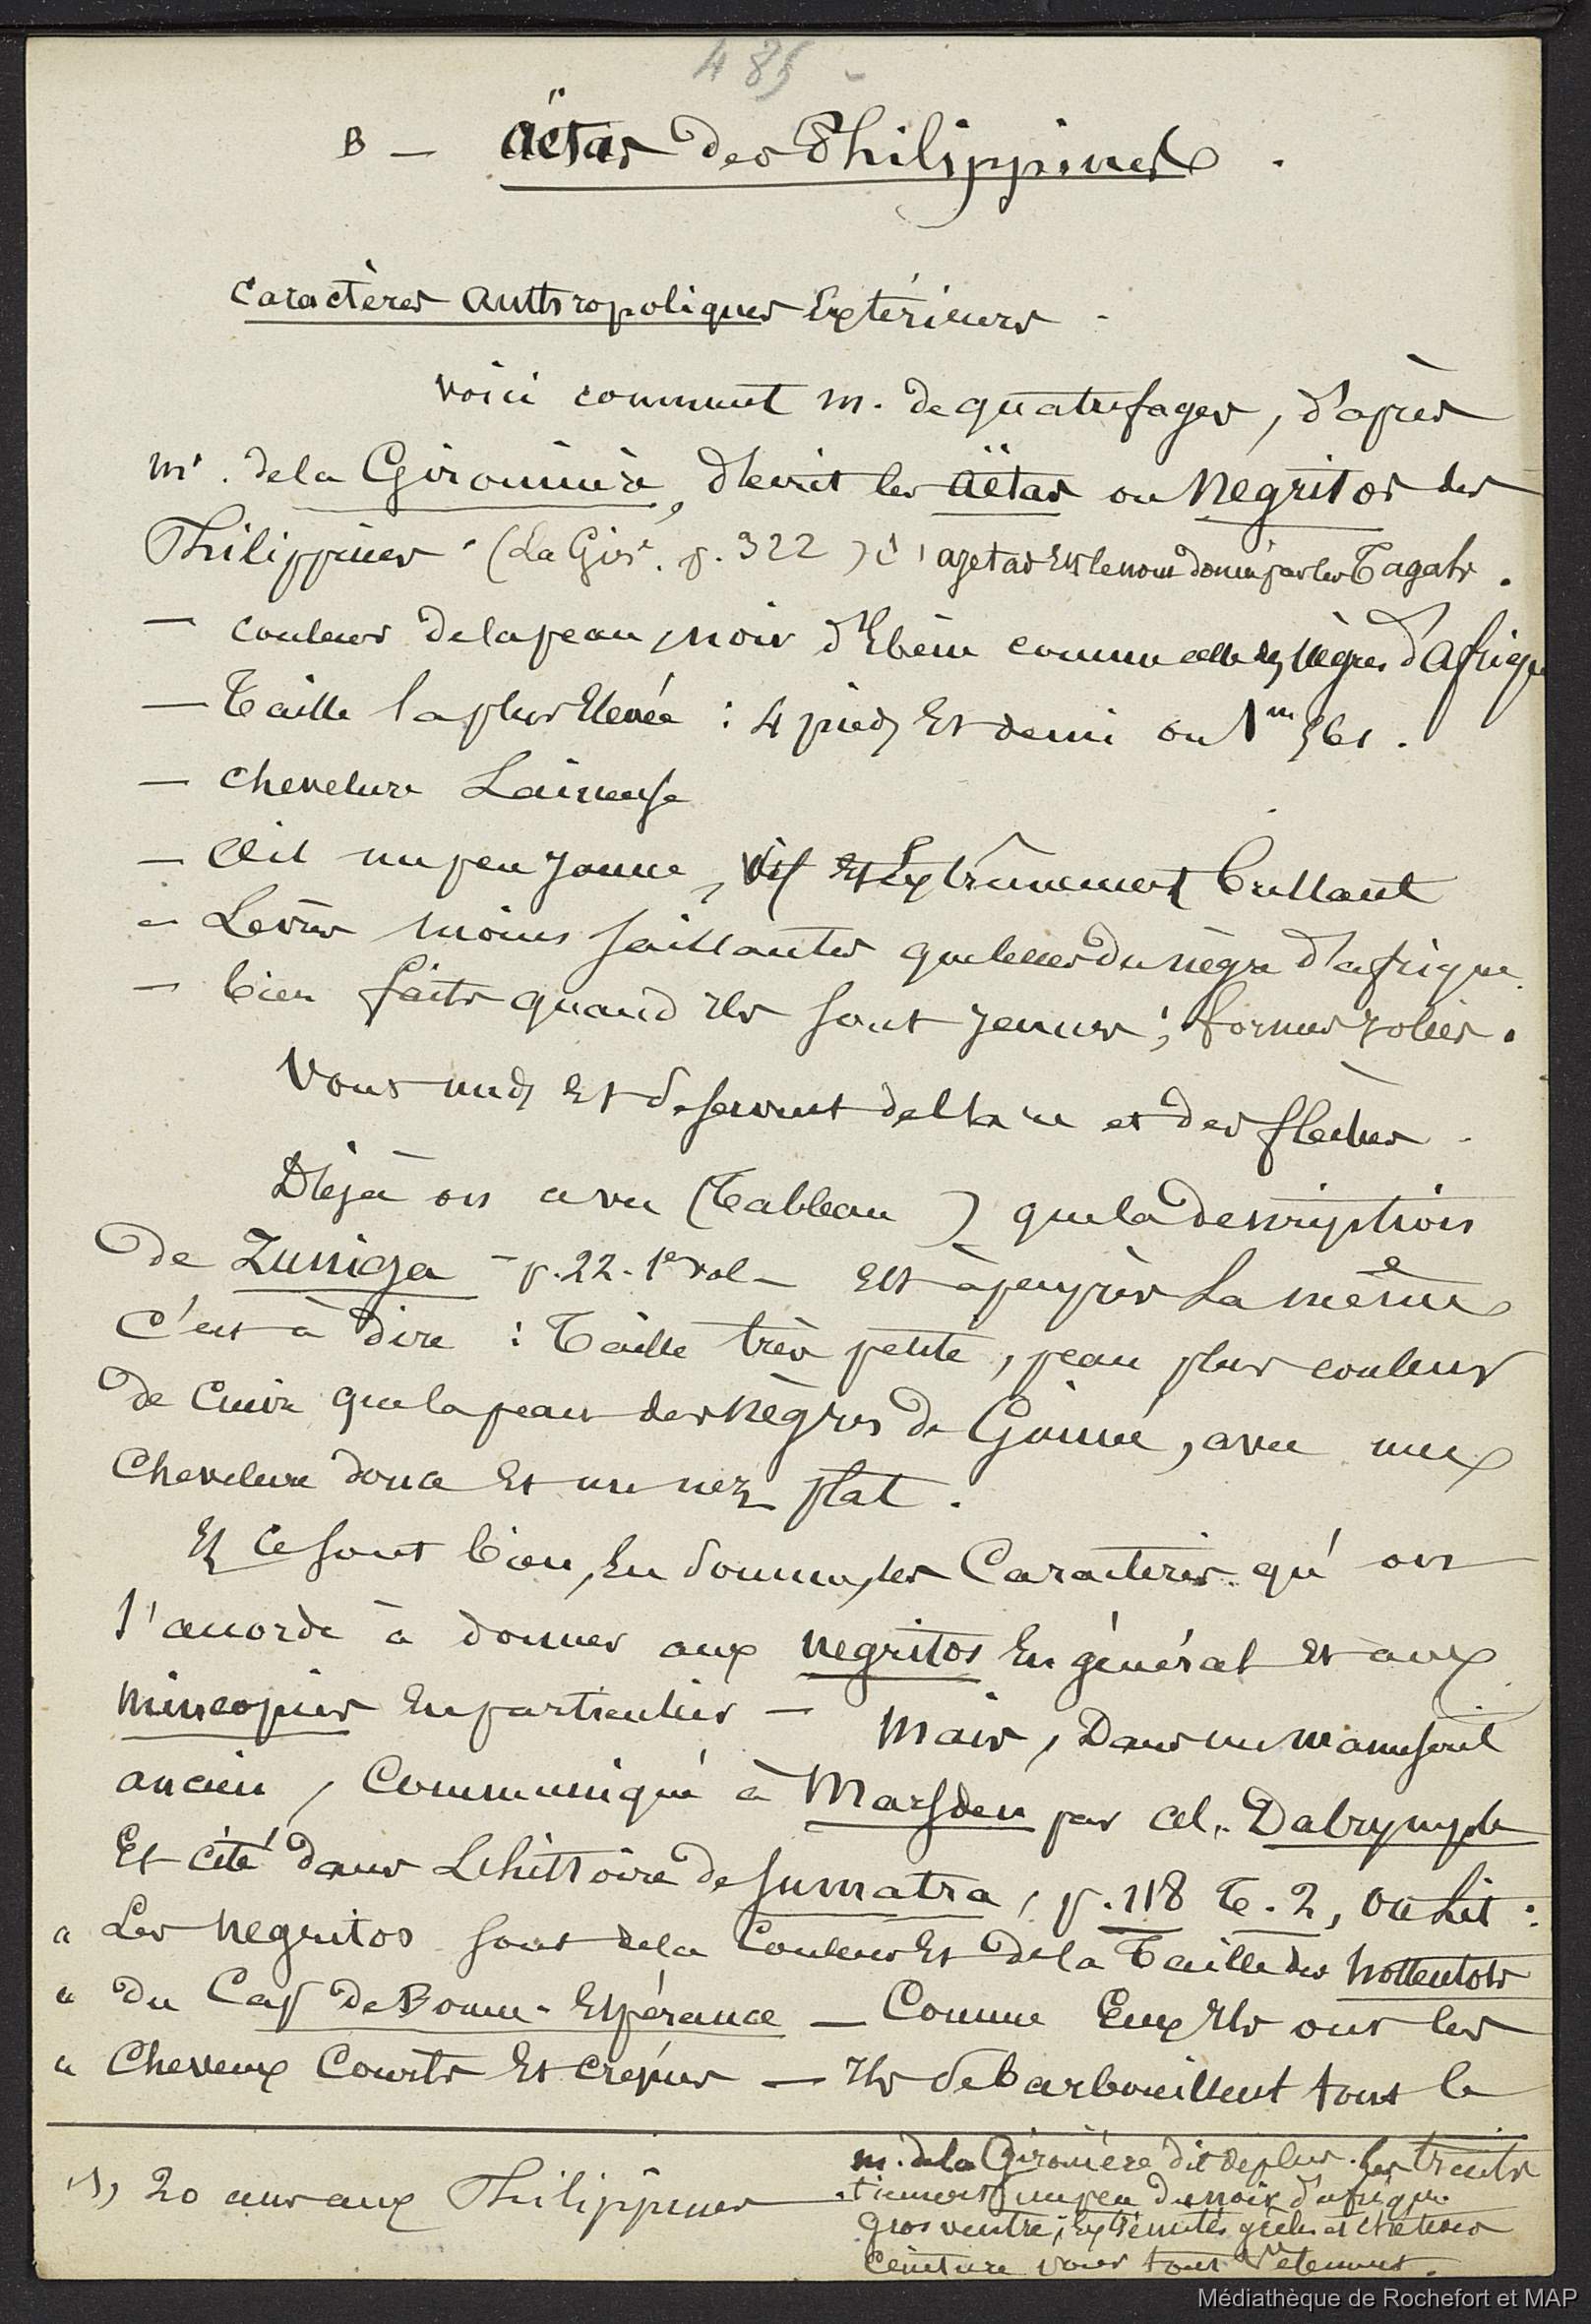 485 -
B — Äetas des Philippines.
Caractères Anthropoliques Extérieurs -
Voici comment M. de quatrefages, d'après
Mr. de la Gironière, décrit les Äëtas ou Négritos des
Philippines (La Gire. p. 322) (1) ajetas Est le nom donné par les Tagals.
— couleur de la peau, noir d'Ebène comme celle des Nègres d'Afrique
— Taille la plus Elevée : 4 pieds Et demi ou 1m
— Chevelure Laineuse
— Œil un peu Jaune, Vif Et Extrêmement brillant
— Lèvres moins saillantes que celles du nègre d'afrique.
— bien faits quand Ils sont Jeunes ; formes Jolies.
Vont nuds Et se servent de l'arc et des flèches.
Déjà on a vu (Tableau ) que la description
de Zuniga - p. 22. 1er vol - Est à peu près La même
C'est à dire : Taille très petite, peau plus couleur
de Cuivre que la peau des Nègres de Guinée, avec une
Chevelure douce Et un nez plat.
Et Ce sont bien, En somme, les Caractères qu'on
s'accorde à donner aux Negritos En général Et aux
Mincopies En particulier — Mais, Dans un Manuscrit
ancien, Communiqué à Marsden par al. Dalrymple
Et cité dans L'histoire de Sumatra, p. 118 T. 2, on Lit :
« Les Negritos sont de la Couleur Et de la Taille des hottentots
« du Cap de Bonne-Espérance — Comme Eux Ils ont les
« Cheveux Courts Et crépus — Ils se barbouillent tout le
(1) 20 ans aux Philippines
M. de la Gironière dit de plus. les traits
tiennent un peu du noir d'afrique.
Gros ventre ; Extrémités grêles et chétives
Ceinture pour tout Vêtement.
Médiathèque de Rochefort et MAP